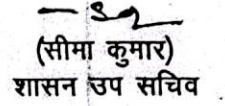 (सीमा कुमार)
शासन उप सचिव